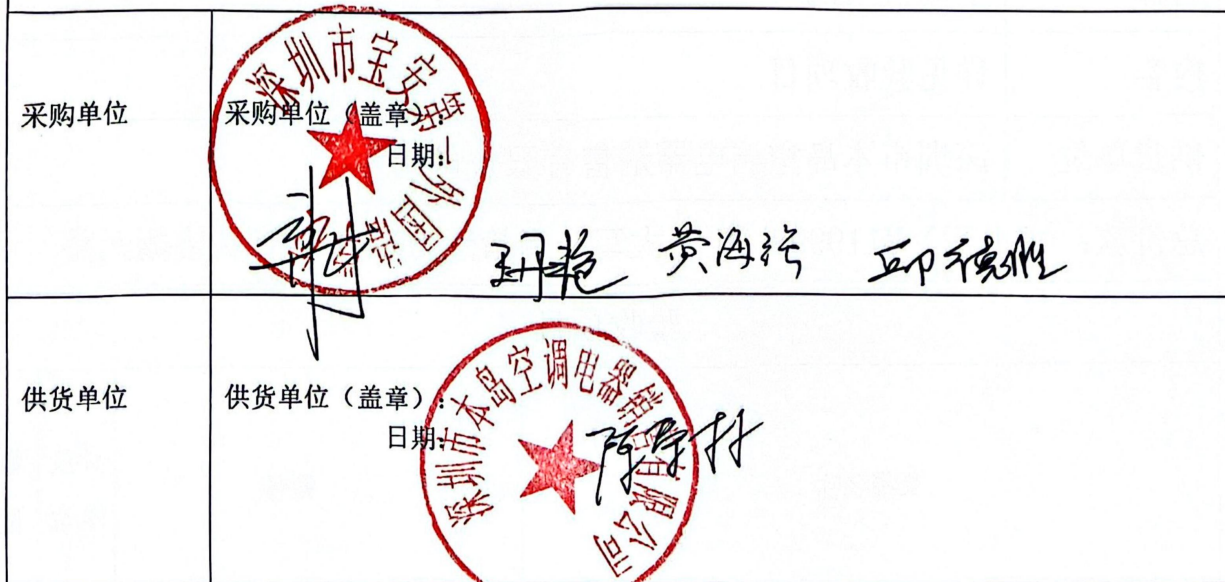 采购单位
采购单位（盖章）：
日期：
深圳市宝安第一外国语
黄海强 邱德胜
供货单位
供货单位（盖章）：
日期：
深圳市本岛空调电器销售有限公司